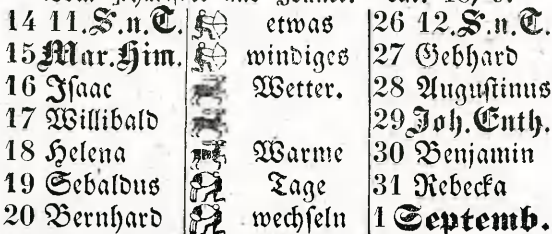 14 11.S.n.T. etwas 26 12.S.n.T.
15 Mar.Him. windiges 27 Gebhard
16 Isaac Wetter. 28 Augustinus
17 Willibald 29 Joh. Enth.
18 Helena Warme 30 Benjamin
19 Sebaldus Tage 31 Rebecka
20 Bernhard wechseln 1 Septemb.